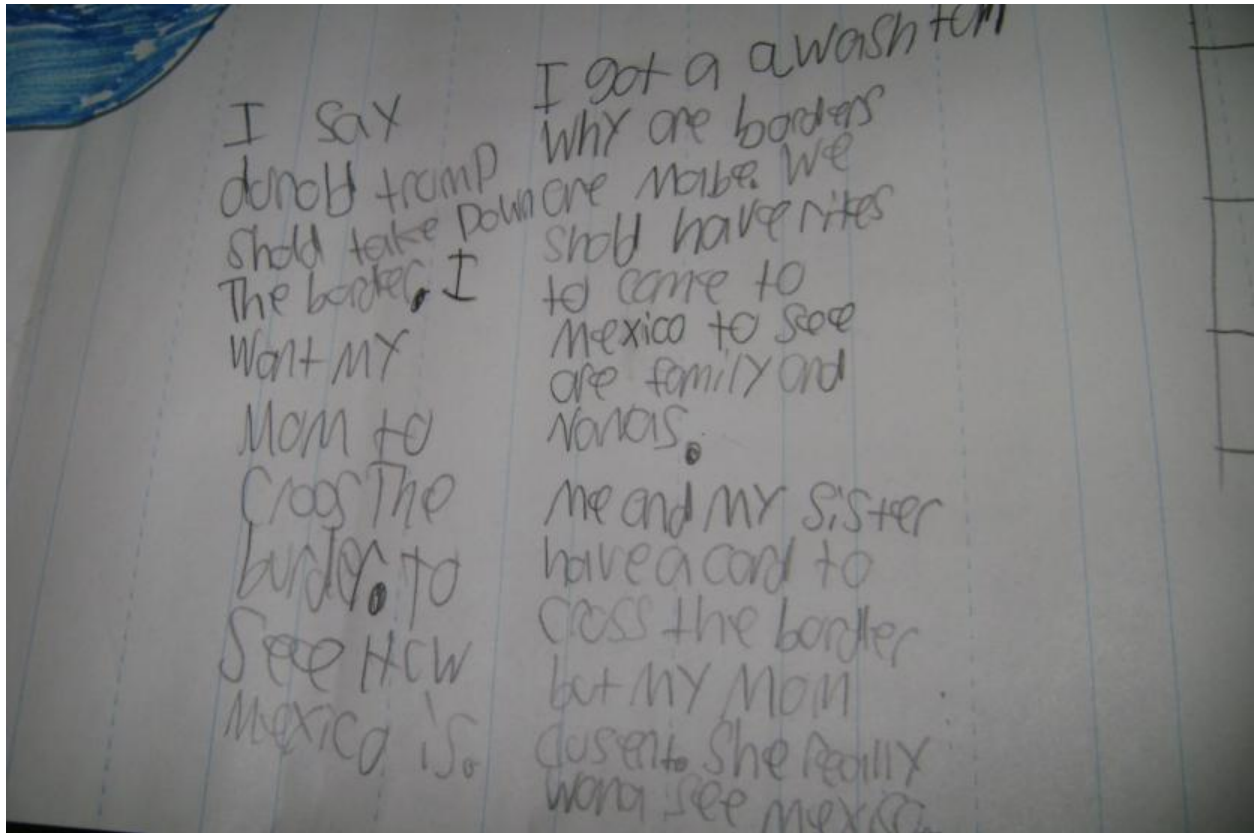 I say
donold tramp
shold take Down
The border. I
Want MY
Mom to
Croos The
burder. to
See How
Mexico is.
I got a awashton
WhY are borders
are Maibe. We
shold have rites
to come to
Mexico to seee
are family and
Nanas.
Me and MY sister
have a card to
cross the border
but MY Mom
dusent. She Really
wana see Mexico.